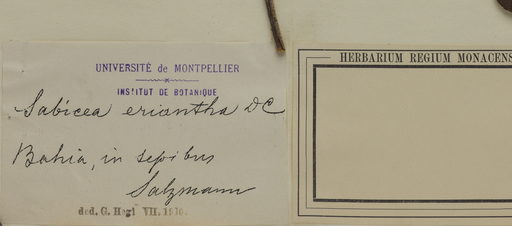 UNIVERSITÉ de MONTPELLIER
INSTITUT DE BOTANIQUE
Sabicea eriantha DC
Bahia, in sepibus
Salzmann
ded. G. Hegi VII. 1910.
HERBARIUM REGIUM MONACENS